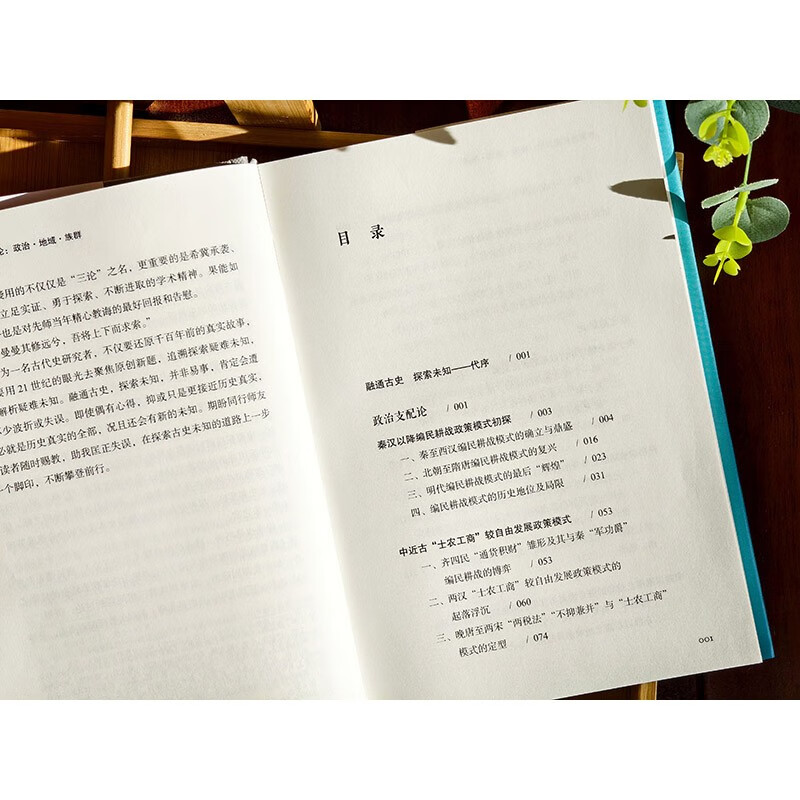 论：政治·地域·族群
用的不仅仅是“三论”之名，更重要的是希冀承袭、
立足实证、勇于探索、不断进取的学术精神。果能如
也是对先师当年精心教诲的最好回报和告慰。
曼曼其修远兮，吾将上下而求索。”
为一名古代史研究者，不仅要还原千百年前的真实故事，
要用21世纪的眼光去聚焦原创新题，追溯探索疑难未知，
解析疑难未知。融通古史，探索未知，并非易事，肯定会遭
少波折或失误。即使偶有心得，抑或只是更接近历史真实，
必就是历史真实的全部，况且还会有新的未知。期盼同行师友
读者随时赐教，助我匡正失误，在探索古史未知的道路上一步
个脚印，不断攀登前行。
目 录
融通古史 探索未知——代序 / 001
政治支配论 / 001
秦汉以降编民耕战政策模式初探 / 003
一、秦至西汉编民耕战模式的确立与鼎盛 / 004
二、北朝至隋唐编民耕战模式的复兴 / 016
三、明代编民耕战模式的最后“辉煌” / 023
四、编民耕战模式的历史地位及局限 / 031
中近古“士农工商”较自由发展政策模式 / 053
一、齐四民“通货积财”雏形及其与秦“军功爵”
编民耕战的博弈 / 053
二、两汉“士农工商”较自由发展政策模式的
起落浮沉 / 060
三、晚唐至两宋“两税法”“不抑兼并”与“士农工商”
模式的定型 / 074
001